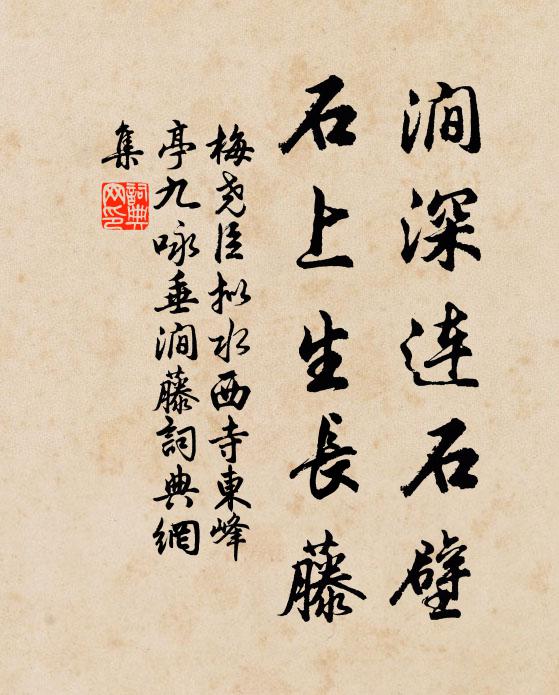 澗深连石壁
石上生長藤
梅尧臣拟水西寺東峰
亭九咏垂澗藤詞典網
集
詞典
网印